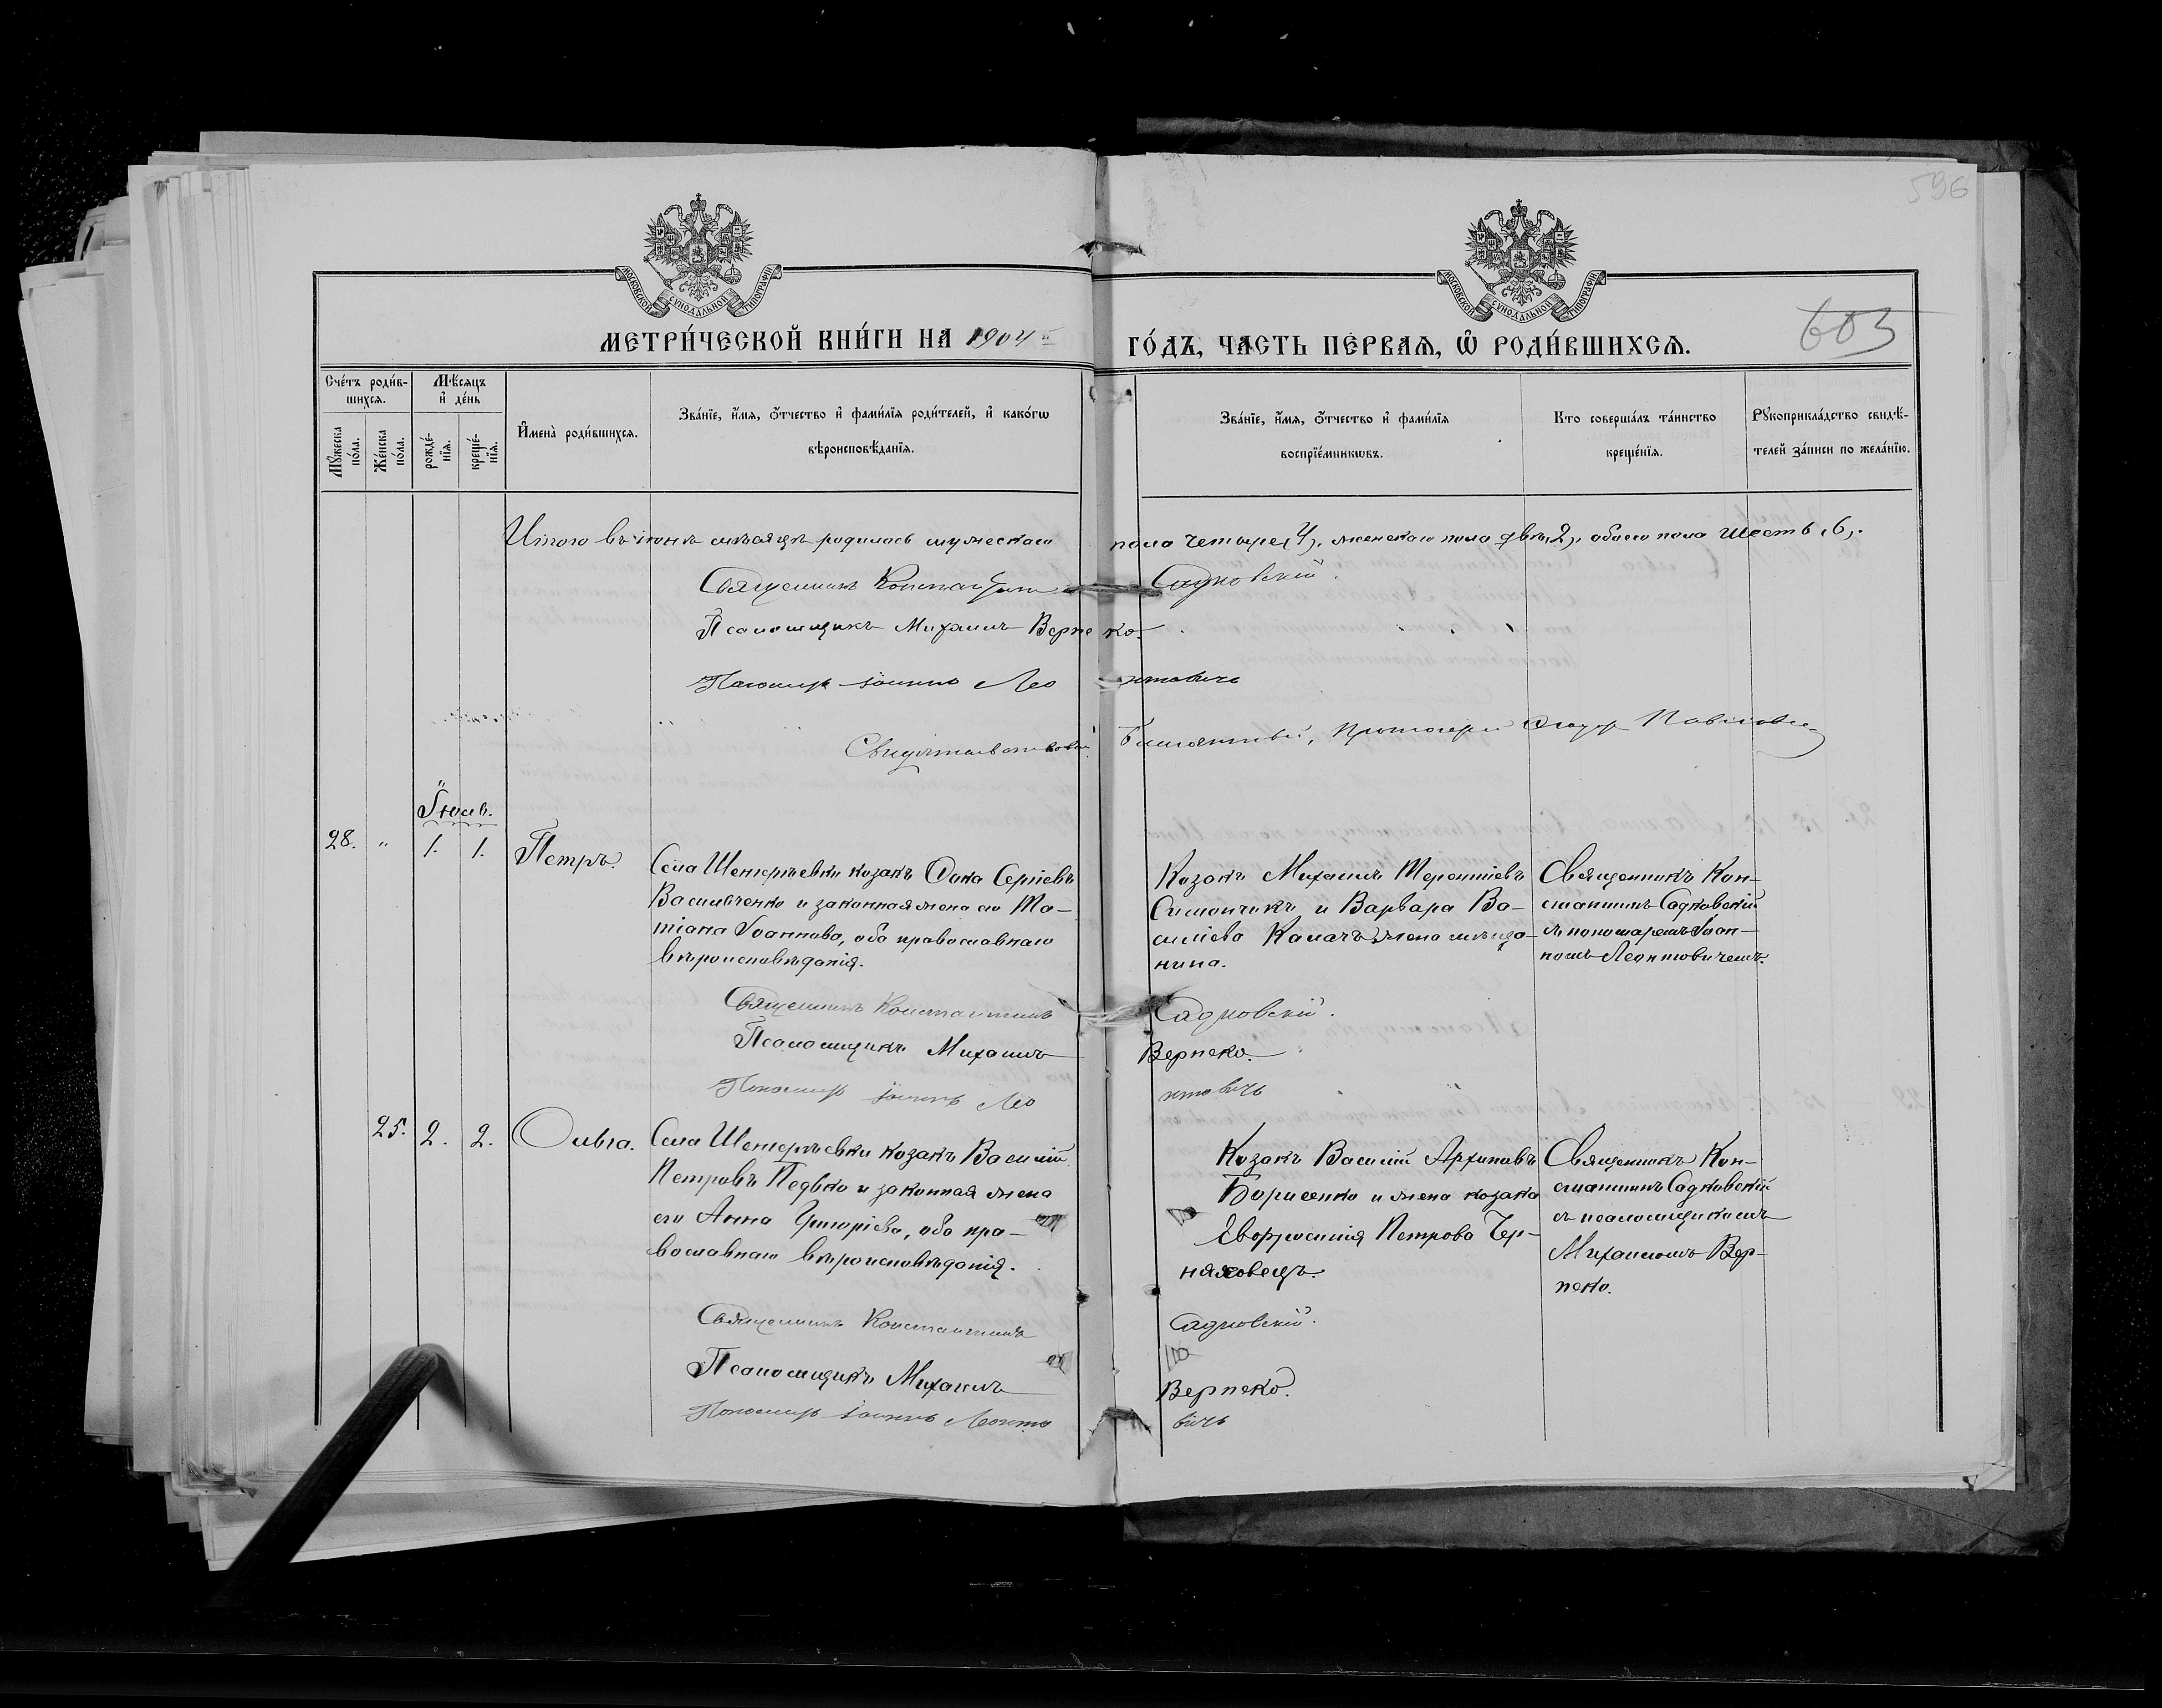 596
МОСКОВСКОЙ СѴНОДАЛЬНОЙ ТИПОГРАФІИ
МОСКОВСКОЙ СѴНОДАЛЬНОЙ ТИПОГРАФІИ
МЕТРИ́ЧЕСКОЙ КНИ́ГИ НА 1904й ГО́ДЪ, ЧАСТЬ ПЕ́РВАЯ, Ѽ РОДИ́ВШИХСЯ.
603
Сче́тъ роди́вшихся.
Мѣ́сяцъ и҆ де́нь
Мꙋ́жеска по́ла.
Же́нска по́ла.
рожде́нїя.
креще́нїя.
И҆мена̀ роди́вшихся.
Зва́нїе, и҆́мя, ѻ҆́тчество и҆ фами́лїя роди́телей, и҆ како́гѡ
вѣроисповѣ́данїя.
Зва́нїе, и҆́мя, ѻ҆́тчество и҆ фами́лїя
воспрїе́мникѡвъ.
Кто соверша́лъ та́инство
креще́нїя.
Рꙋкоприкла́дство свидѣ́-
телей за́писи по жела́нїю.
Итого въ іюнѣ мѣсяцѣ родилось мужескаго пола четыре (4), женскаго пола двѣ (2), обоего пола шесть (6).
Священникъ Константинъ Садковскій.
Псаломщикъ Михаилъ Верпеко.
Пономарь Іоаннъ Леонтовичъ
Свидѣтельствовалъ Благочинный, Протоіерей
Іюль.
28. " 1. 1. Петръ.
Села Шенгрѣевки козакъ Ѳома Сергіевъ
Васильченко и законная жена его Та-
тіана Іоаннова, оба православнаго
вѣроисповѣданія.
Козакъ Михаилъ Терентіевъ
Симончикъ и Варвара Ва-
силіева Калачъ, жена мѣща-
нина.
Священникъ Кон-
стантинъ Садковскій
съ пономаремъ Іоан-
номъ Леонтовичемъ.
Священникъ Константинъ Садковскій.
Псаломщикъ Михаилъ Верпеко.
Пономарь Іоаннъ Леонтовичъ
25. 2. 2. Ольга.
Села Шенгрѣевки козакъ Василій
Петровъ Педько и законная жена
его Анна Григоріева, оба пра-
вославнаго вѣроисповѣданія.
Козакъ Василій Архиповъ
Борисенко и жена козака
Евфросинія Петрова Чер-
няховецъ.
Священникъ Кон-
стантинъ Садковскій
съ псаломщикомъ
Михаиломъ Вер-
пеко.
Священникъ Константинъ Садковскій.
Псаломщикъ Михаилъ Верпеко.
Пономарь Іоаннъ Леонтовичъ